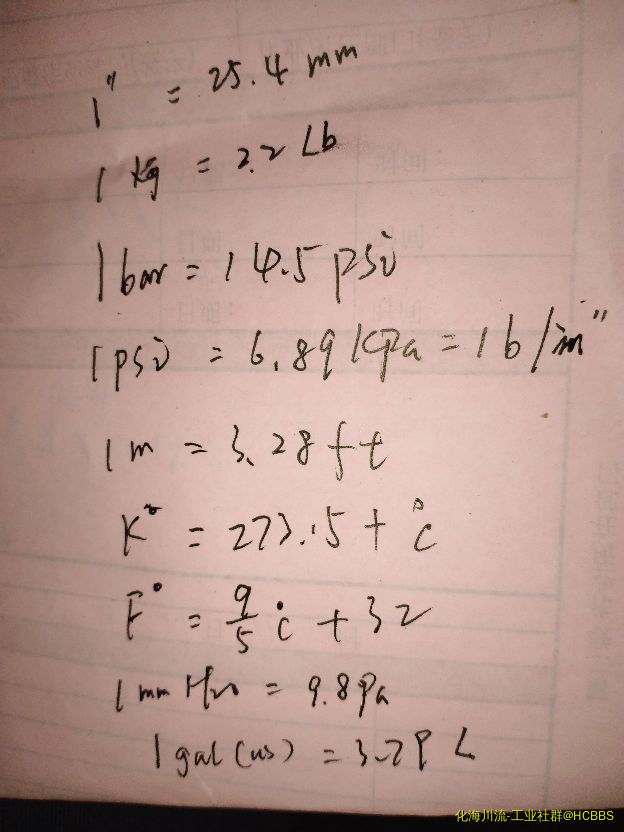 1" = 25.4 mm
1 kg = 2.2 Lb
1 bar = 14.5 psi
1 psi = 6.89 kpa = 1b/in"
1 m = 3.28 ft
K° = 273.15 + °C
F° = 9/5 °C + 32
1 mm H2O = 9.8 Pa
1 gal (us) = 3.79 L
化海川流-工业社群@HCBBS